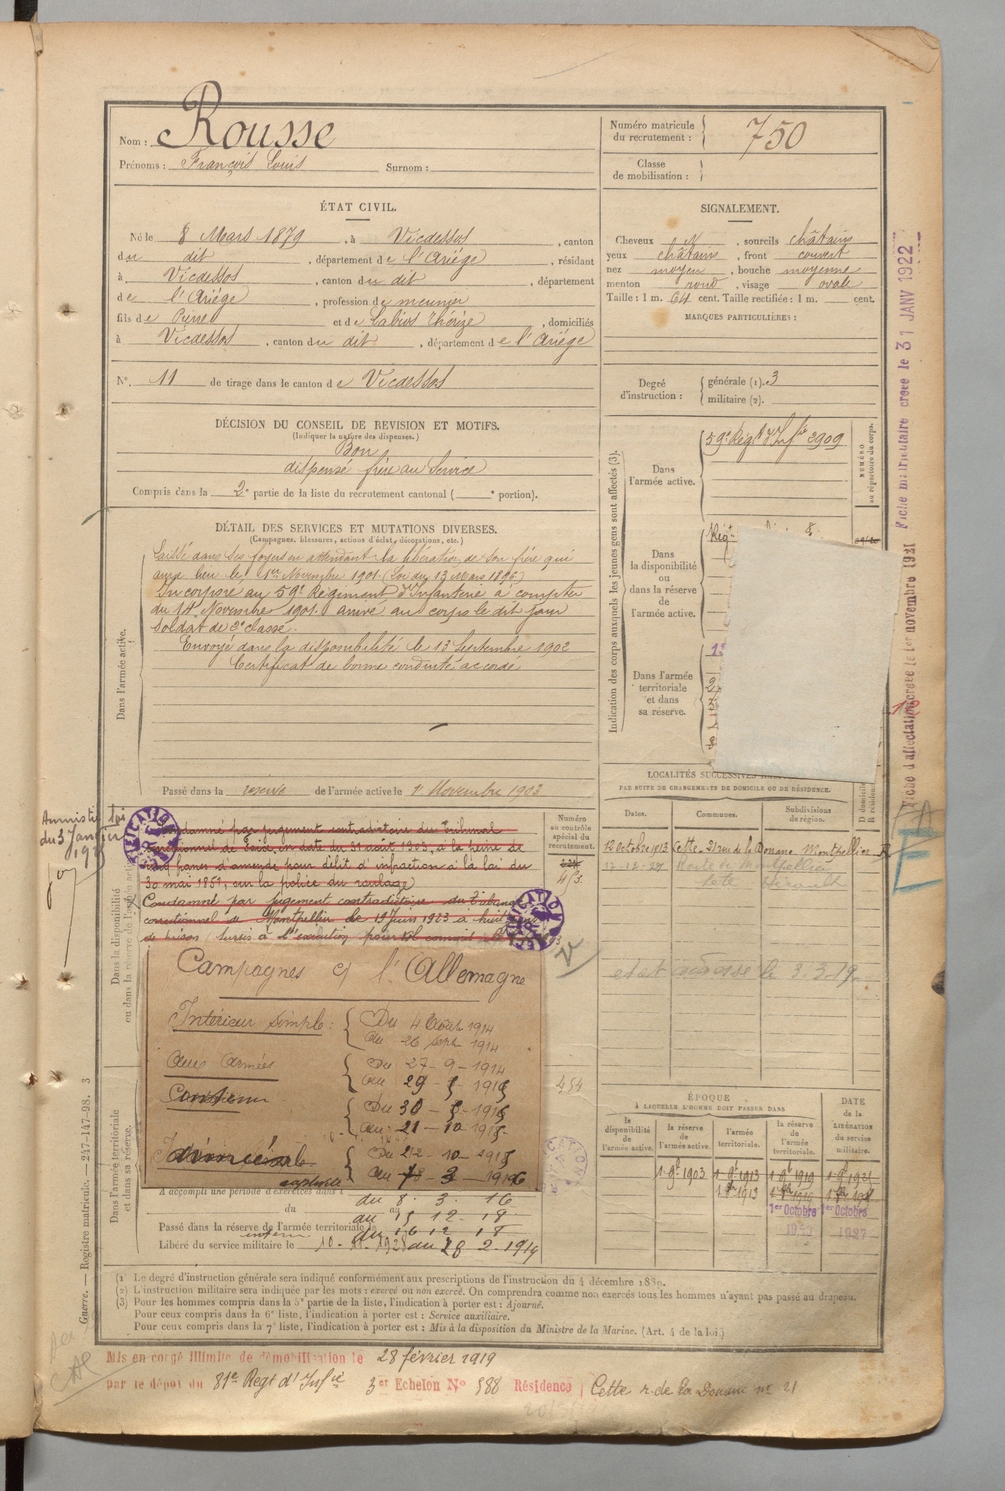 Nom : Rousse
Prénoms : François Louis Surnom :
Numéro matricule du recrutement : 750
Classe de mobilisation :
ÉTAT CIVIL.
Né le 8 Mars 1879, à Vicdessos, canton
du dit, département de l'Ariège, résidant
à Vicdessos, canton du dit, département
de l'Ariège, profession de meunier
fils de Pierre et de Cabios Thérèze, domiciliés
à Vicdessos, canton du dit, département de l'Ariège
N° 11 de tirage dans le canton de Vicdessos
SIGNALEMENT.
Cheveux N, sourcils châtains
yeux châtains, front couvert
nez moyen, bouche moyenne
menton rond, visage ovale
Taille : 1 m. 64 cent. Taille rectifiée : 1 m. cent.
MARQUES PARTICULIÈRES :
Degré d'instruction : générale (1). 3
militaire (2).
DÉCISION DU CONSEIL DE REVISION ET MOTIFS.
(Indiquer la nature des dispenses.)
Bon
dispensé frère au Service
Compris dans la 2e partie de la liste du recrutement cantonal ( e portion).
DÉTAIL DES SERVICES ET MUTATIONS DIVERSES.
(Campagnes, blessures, actions d'éclat, décorations, etc.)
Dans l'armée active.
Laissé dans ses foyers en attendant la libération de son frère qui
aura lieu le 1er Novembre 1901. (Loi du 13 Mars 1896)
Incorporé au 59e Régiment d'Infanterie à compter
du 14 Novembre 1901. arrivé au corps le dit jour
Soldat de 2e classe.
Envoyé dans la disponibilité le 13 Septembre 1902
Certificat de bonne conduite accordé
Passé dans la réserve de l'armée active le 1 Novembre 1903
Indication des corps auxquels les jeunes gens sont affectés (3).
Dans l'armée active.
59e Régt d'Infie 2909
NUMÉRO au répertoire du corps.
Dans la disponibilité ou dans la réserve de l'armée active.
Dans l'armée territoriale et dans sa réserve.
LOCALITÉS SUCCESSIVES
PAR SUITE DE CHANGEMENTS DE DOMICILE OU DE RÉSIDENCE.
Dates. Communes. Subdivisions de région. D domicile R résidence
12 Octobre 1913 Cette, 21 rue de la Douane Montpellier R
12-12-27 Route de Montpellier
Sète Hérault
Amnistie loi
du 3 Janvier
Dans la disponibilité ou dans la réserve de l'armée active
Condamné par jugement contradictoire du Tribunal
correctionnel de Foix, en date du 31 août 1903, à la peine de
cinq francs d'amende pour délit d'infraction à la loi du
30 mai 1851, sur la police du roulage
Condamné par jugement contradictoire du Tribunal
correctionnel de Montpellier du 19 Juin 1923 à huit
de prison (Sursis à l'exécution)
Numéro au contrôle spécial du recrutement.
453
454
Campagnes c/ l'Allemagne
Intérieur simple : Du 4 Août 1914
au 26 sept 1914
Aux armées Du 27-9-1914
au 29-5-1915
Du 30-5-1915
au 21-10-1915
Du 22-10-1915
captivité du 8. 3. 16
au 15 12. 18
Dans l'armée territoriale et dans sa réserve.
A accompli une période d'exercices dans l
du au
Passé dans la réserve de l'armée territoriale le
intérieur du 16 12 18
Libéré du service militaire le
au 28 2-1919
ÉPOQUE
À LAQUELLE L'HOMME DOIT PASSER DANS
la disponibilité de l'armée active. la réserve de l'armée active. l'armée territoriale. la réserve de l'armée territoriale.
DATE de la LIBÉRATION du service militaire.
1 9bre 1903 1 9bre 1913 1 9bre 1919
1er Octobre 1er Octobre
1927
(1) Le degré d'instruction générale sera indiqué conformément aux prescriptions de l'instruction du 4 décembre 1889.
(2) L'instruction militaire sera indiquée par les mots : exercé ou non exercé. On comprendra comme non exercés tous les hommes n'ayant pas passé au drapeau.
(3) Pour les hommes compris dans la 5e partie de la liste, l'indication à porter est : Ajourné.
Pour ceux compris dans la 6e liste, l'indication à porter est : Service auxiliaire.
Pour ceux compris dans la 7e liste, l'indication à porter est : Mis à la disposition du Ministre de la Marine. (Art. 4 de la loi.)
Mis en congé illimité de démobilisation le 28 février 1919
par le dépôt du 81e Regt d'Infie 3er Echelon N° 588 Résidence Cette r. de la Douane n° 21
Guerre. — Registre matricule. — 247-147-98. 3
Fiche d'affectation créée le 1er novembre 1921 Fiche matriculaire créée le 31 JANV 1922